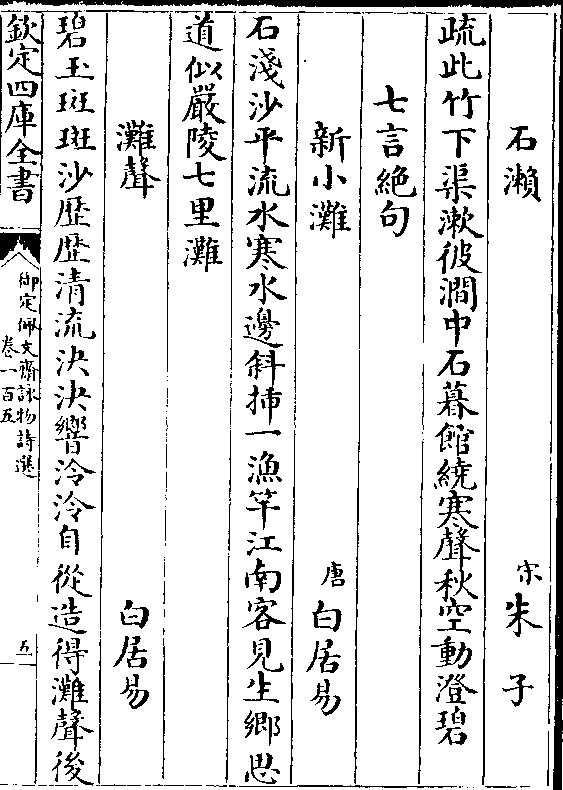 石瀨 宋朱子
疏此竹下渠漱彼澗中石暮館繞寒聲秋空動澄碧
七言絶句
新小灘 唐白居易
石淺沙平流水寒水邊斜揷一漁竿江南客見生鄉思
道似嚴陵七里灘
灘聲 白居易
碧玉斑斑沙歴歴清流決決響泠泠自從造得灘聲後
欽定四庫全書
御定佩文齋詠物詩選
卷一百五
五